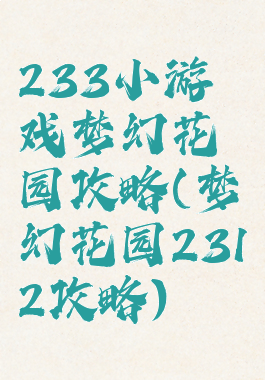 233小游
戏梦幻花
园攻略(梦
幻花园231
2攻略)